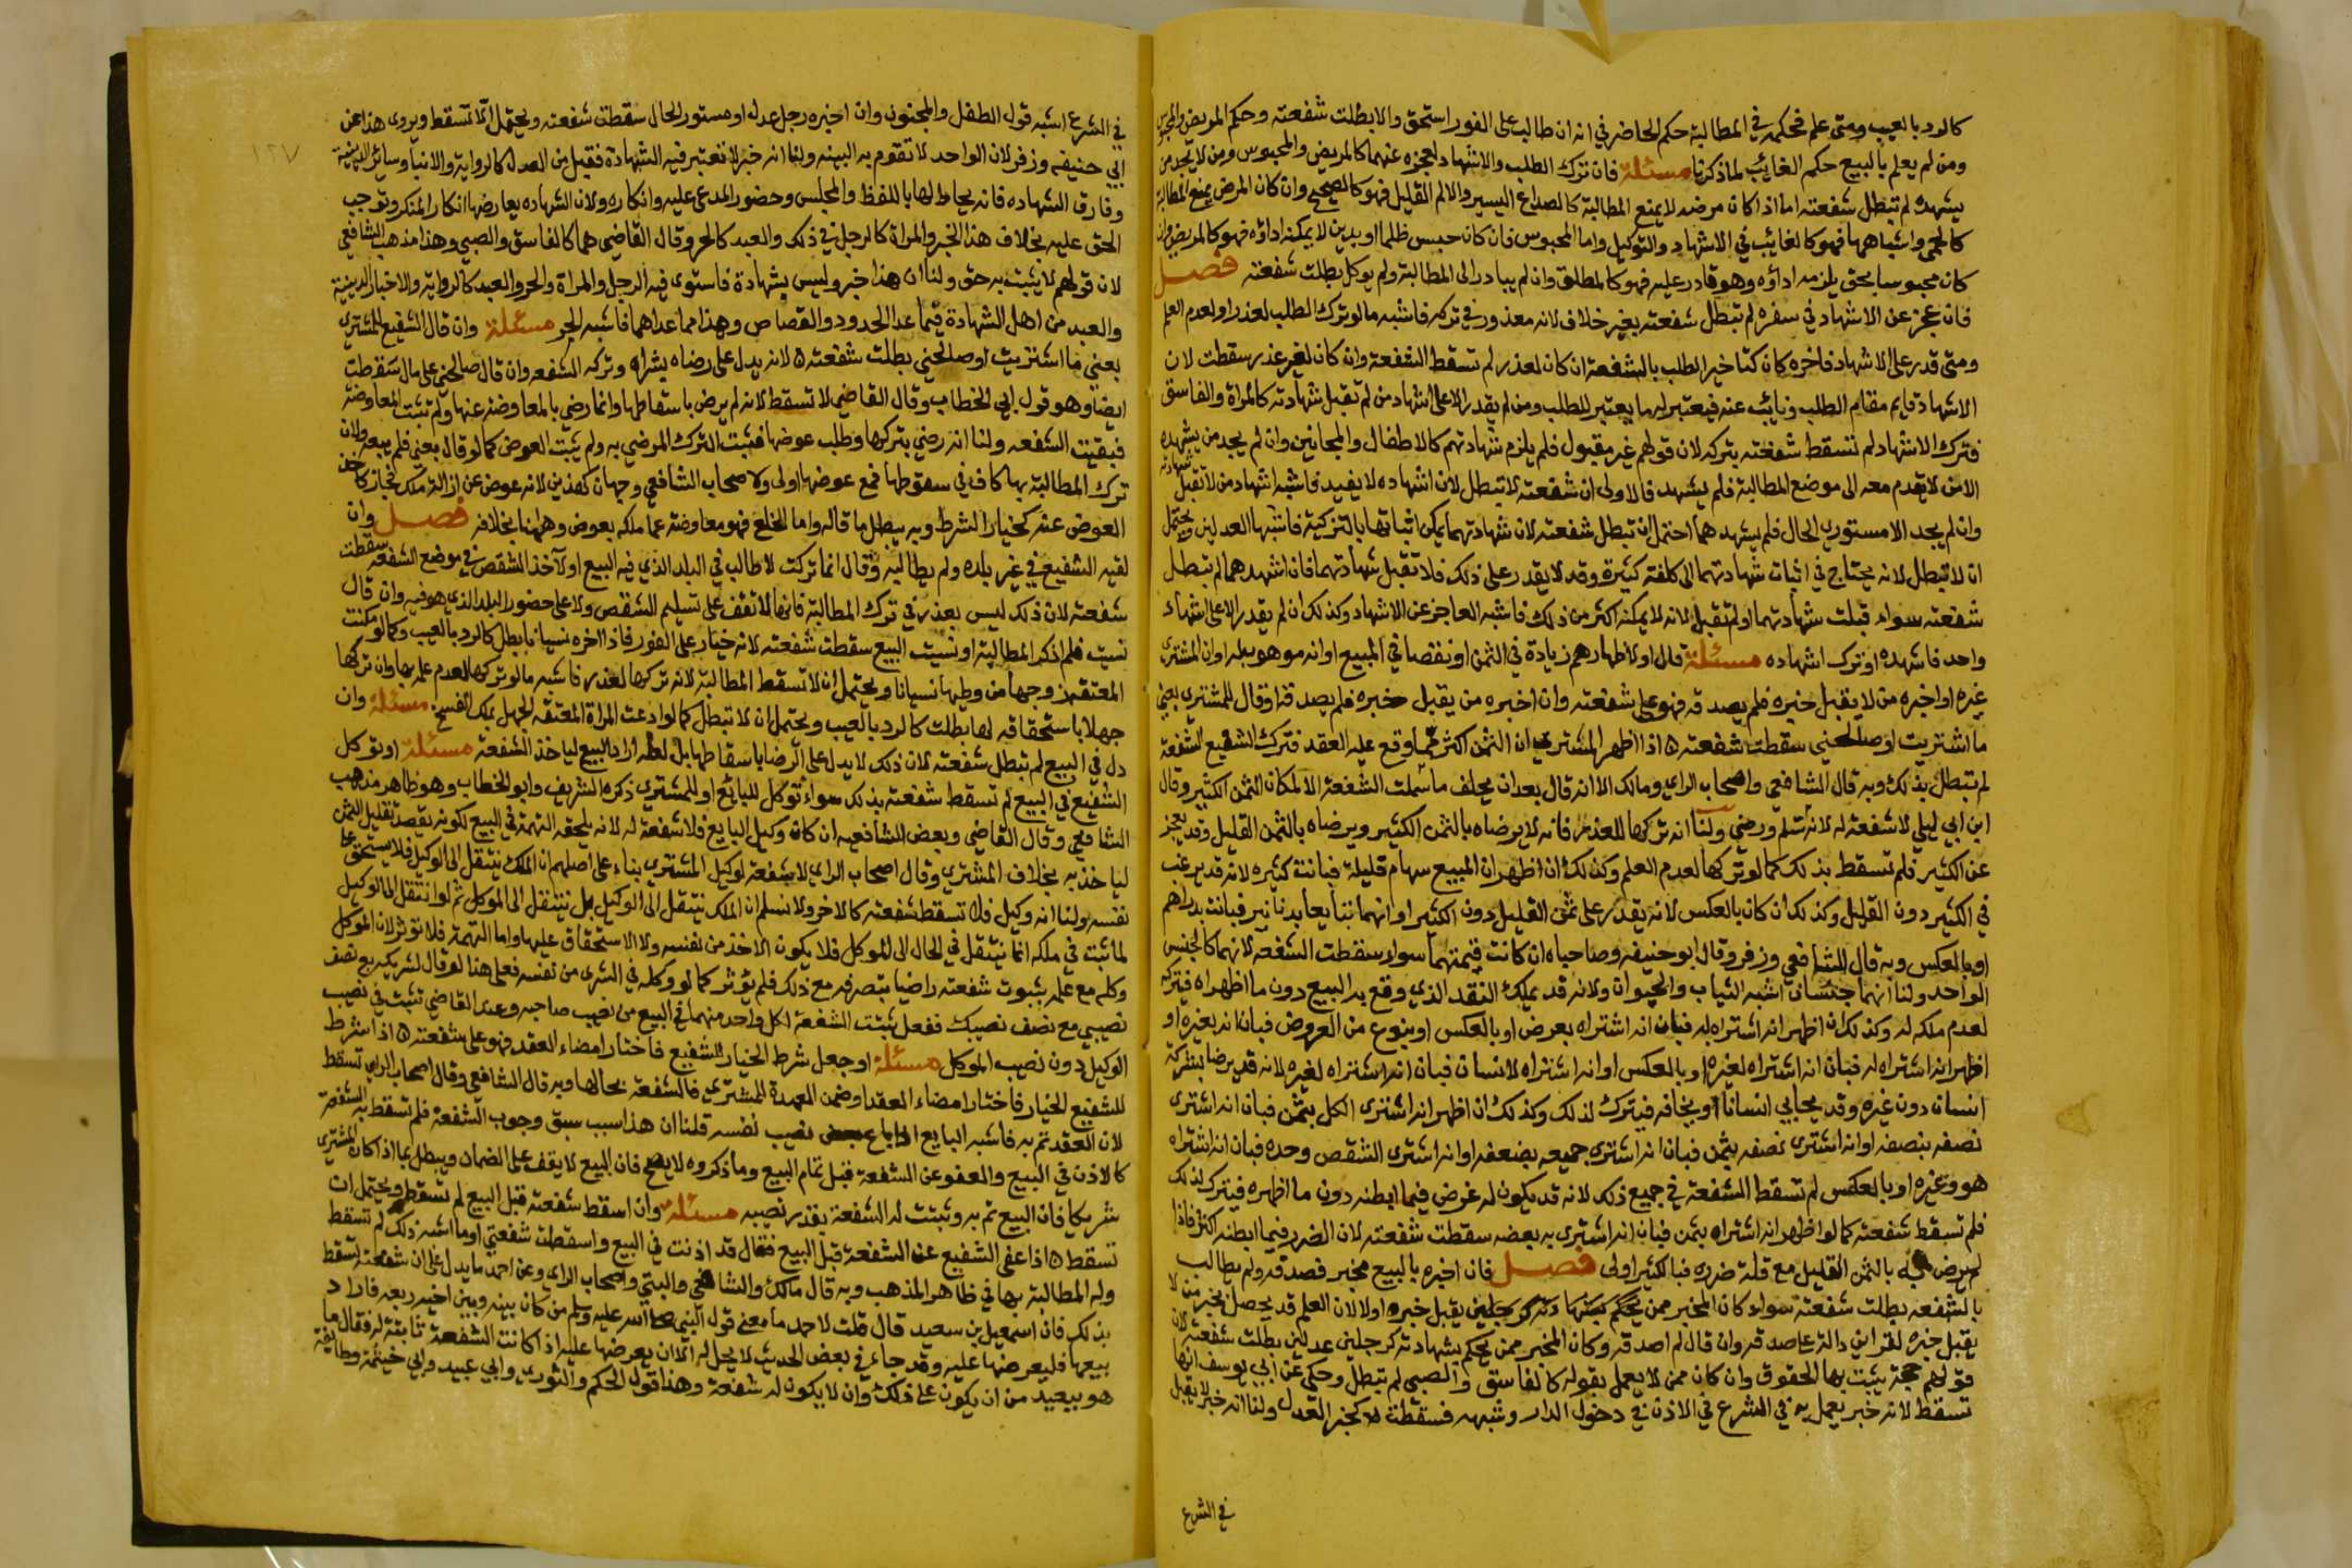 كالرد بالعيب ومتى علم فحكمه في المطالبة حكم الحاضر في انه ان طالب على الفور استحق والا بطلت شفعته وحكم المريض والمحبوس
ومن لم يعلم بالبيع حكم الغائب لما ذكرنا مسئلة فان ترك الطلب والاشهاد لعجزه عنهما كالمريض والمحبوس ومن لا يجد من
يشهده لم تبطل شفعته اما اذا كان مرضه لا يمنع المطالبة كالصداع اليسير والالم القليل فهو كالصحيح وان كان المرض يمنع المطالبة
كالحمى واشباهها فهو كالغائب في الاشهاد والتوكيل واما المحبوس فان كان حبس ظلما او بدين لا يمكنه اداؤه فهو كالمريض وان
كان محبوسا بحق يلزمه اداؤه وهو قادر عليه فهو كالمطلق وان لم يبادر الى المطالبة ولم يوكل بطلت شفعته فصل
فان عجز عن الاشهاد في سفره لم تبطل شفعته بغير خلاف لانه معذور في تركه فاشبه مالو ترك الطلب لعذر او لعدم العلم
ومتى قدر على الاشهاد فاخره كان كتاخير الطلب بالشفعة ان كان لعذر لم تسقط الشفعة وان كان لغير عذر سقطت لان
الاشهاد قايم مقام الطلب ونايب عنه فيعتبر له ما يعتبر للطلب ومن لم يقدر الا على اشهاد من لم تقبل شهادته كالمراة والفاسق
فترك الاشهاد لم تسقط شفعته بتركه لان قولهم غير مقبول فلم يلزم شهادتهم كالاطفال والمجانين وان لم يجد من يشهده
الا من لا يقدم معه الى موضع المطالبة فلم يشهد فالاولى ان شفعته لا تبطل لان اشهاده لا يفيد فاشبه اشهاد من لا تقبل شهادته
وان لم يجد الا مستوري الحال فلم يشهدهما احتمل ان تبطل شفعته لان شهادتهما يمكن اثباتها بالتزكية فاشبها العدلين ويحتمل
ان لا تبطل لانه يحتاج في اثبات شهادتهما الى كلفة كثيرة وقد لا يقدر على ذلك فلا تقبل شهادتهما فان اشهدهما لم تبطل
شفعته سواء قبلت شهادتهما او لم تقبل لانه لا يمكنه اكثر من ذلك فاشبه العاجز عن الاشهاد وكذلك ان لم يقدر الا على اشهاد
واحد فاشهده او ترك اشهاده مسئلة قال او لاظهارهم زيادة في الثمن او نقصا في المبيع او انه موهوب له او ان المشترى
غيره او اخبره من لا يقبل خبره فلم يصدقه فهو على شفعته وان اخبره من يقبل خبره فلم يصدقه او قال للمشترى بعني
ما اشتريت او صالحني سقطت شفعته ه اذا اظهر المشتري ان الثمن اكثر مما وقع عليه العقد فترك الشفيع الشفعة
لم تبطل بذلك وبه قال الشافعي واصحاب الراي ومالك الا انه قال بعد ان يحلف ما سلمت الشفعة الا لمكان الثمن الكثير وقال
ابن ابي ليلى لا شفعة له لانه سلم ورضي ولنا انه تركها للعذر فانه لا يرضاه بالثمن الكثير ويرضاه بالثمن القليل وقد يعجز
عن الكثير فلم تسقط بذلك كما لو تركها لعدم العلم وكذلك ان اظهر ان المبيع سهام قليلة فبانت كثيره لانه قد يرغب
في الكثير دون القليل وكذلك ان كان بالعكس لانه يقدر على ثمن القليل دون الكثير او انهما تبايعا بدنانير فبانت بدراهم
او بالعكس وبه قال الشافعي وزفر وقال ابو حنيفه وصاحباه ان كانت قيمتهما سواء سقطت الشفعه لانهما كالجنس
الواحد ولنا انهما جنسان اشبه الثياب والحيوان ولانه قد يملك النقد الذي وقع به البيع دون ما اظهراه فتركه
لعدم ملكه له وكذلك ان اظهر انه اشتراه له فبان انه اشتراه بعرض او بالعكس او بنوع من العروض فبان انه بغيره او
اظهر انه اشتراه له فبان انه اشتراه لغيره او بالعكس او انه اشتراه لانسان فبان انه اشتراه لغيره لانه قد يرضا بشركة
انسان دون غيره وقد يحابي انسانا او يخافه فيترك لذلك وكذلك ان اظهر انه اشترى الكل بثمن فبان انه اشترى
نصفه بنصفه او انه اشترى نصفه بثمن فبان انه اشترى جميعه بضعفه او انه اشترى الشقص وحده فبان انه اشتراه
هو وغيره او بالعكس لم تسقط الشفعة في جميع ذلك لانه قد يكون له غرض فيما ابطنه دون ما اظهره فيترك لذلك
فلم تسقط شفعته كما لو اظهر انه اشتراه بثمن فبان انه اشترى به بعضه سقطت شفعته لان الضرر فيما ابطنه اكثر فاذا
لم يرض به بالثمن القليل مع قلة ضرره فبالكثير اولى فصل فان اخبره بالبيع مخبر فصدقه ولم يطالب
بالشفعه بطلت شفعته سواء كان المخبر ممن يحكم بشهادته كرجلين يقبل خبره او لا لان العلم قد يحصل بخبر من لا
يقبل خبره لقراين دالة على صدقه وان قال لم اصدقه وكان المخبر ممن يحكم بشهادته كرجلين عدلين بطلت شفعته لان
قولهم حجة يثبت بها الحقوق وان كان ممن لا يعمل بقوله كالفاسق والصبي لم تبطل وحكى عن ابي يوسف انها
تسقط لانه خبر يعمل به في الشرع في الاذن في دخول الدار وشبهه فسقطت كخبر العدل ولنا انه خبر لا يقبل
في الشرع
١٢٧
في الشرع اشبه قول الطفل والمجنون وان اخبره رجل عدل او مستور الحال سقطت شفعته ويحتمل الا تسقط ويروى هذا عن
ابي حنيفه وزفر لان الواحد لا تقوم به البينه ولنا انه خبر لا تعتبر فيه الشهادة فقبل من العدل كالرواية والانبا وسائر الدينية
وفارق الشهاده فانه يحتاط لها باللفظ والمجلس وحضور المدعى عليه وانكاره ولان الشهاده يعارضها انكار المنكر وتوجب
الحق عليه بخلاف هذا الخبر والمراة كالرجل في ذلك والعبد كالحر وقال القاضي هما كالفاسق والصبي وهذا مذهب الشافعي
لان قولهم لا يثبت به حق ولنا ان هذا خبر وليس بشهادة فاستوى فيه الرجل والمراة والحر والعبد كالرواية والاخبار الدينية
والعبد من اهل الشهادة فيما عدا الحدود والقصاص وهذا مما عداهما فاشبه الحر مسئلة وان قال الشفيع للمشتري
بعني ما اشتريت او صالحني بطلت شفعته ه لانه يدل على رضاه بشرائه وتركه الشفعه وان قال صالحني على مال سقطت
ايضا وهو قول ابي الخطاب وقال القاضي لا تسقط لانه لم يرض باسقاطها وانما رضي بالمعاوضة عنها ولم تثبت المعاوضة
فبقيت الشفعه ولنا انه رضي بتركها وطلب عوضها فثبت الترك المرضي به ولم يثبت العوض كما لو قال بعني فلم يبعه ولان
ترك المطالبة بها كاف في سقوطها فمع عوضها اولى ولاصحاب الشافعي وجهان كهذين لانه عوض عن ازالة ملك فجاز كاخذ
العوض عنه كخيار الشرط وبه يبطل ما قاله واما الخلع فهو معاوضة عما ملكه بعوض وههنا بخلافه فصل وان
لقيه الشفيع في غير بلده ولم يطالبه وقال انما تركت لاطالب في البلد الذي فيه البيع او لآخذ الشقص في موضع الشفعة سقطت
شفعته لان ذلك ليس بعذر في ترك المطالبة فانها لا تقف على تسليم الشقص ولا على حضور البلد الذي هو فيه وان قال
نسيت فلم اذكر المطالبة او نسيت البيع سقطت شفعته لانه خيار على الفور فاذا اخره نسيانا بطل كالرد بالعيب وكما لو مكنت
المعتقة زوجها من وطيها نسيانا ويحتمل ان لا تسقط المطالبة لانه تركها لعذر فاشبه مالو تركها لعدم علمه بها وان تركها
جهلا باستحقاقه لها بطلت كالرد بالعيب ويحتمل ان لا تبطل كما لو ادعت المراة المعتقه الجهل بملك الفسخ مسئلة وان
دل في البيع لم تبطل شفعته لان ذلك لا يدل على الرضا باسقاطها بل لعله اراد البيع لياخذ الشفعة مسئلة او توكل
الشفيع في البيع لم تسقط شفعته بذلك سواء توكل للبائع او للمشتري ذكره الشريف وابو الخطاب وهو ظاهر مذهب
الشافعي وقال القاضي وبعض الشافعيه ان كان وكيل البايع فلا شفعة له لانه يلحقه التهمة في البيع لكونه يقصد تقليل الثمن
لياخذ به بخلاف المشتري وقال اصحاب الراي لا شفعة لوكيل المشتري بناء على اصلهم ان الملك ينتقل الى الوكيل فلا يستحق على
نفسه ولنا انه وكيل فلا تسقط شفعته كالاخر ولا نسلم ان الملك ينتقل الى الوكيل بل ينتقل الى الموكل ثم لو انتقل الى الوكيل
لما ثبت في ملكه انما ينتقل في الحال الى الموكل فلا يكون الاخذ من نفسه ولا الاستحقاق عليها واما التهمة فلا توثر لان الموكل
وكله مع علمه بثبوت شفعته راضيا بتصرفه مع ذلك فلم يؤثر كما لو وكله في الشرى من نفسه فعلى هذا لو قال لشريكه بع نصف
نصيبي مع نصف نصيبك ففعل ثبتت الشفعة لكل واحد منهما في البيع من نصيب صاحبه وعند القاضي تثبت في نصيب
الوكيل دون نصيب الموكل مسئلة او جعل شرط الخيار للشفيع فاختار امضاء العقد فهو على شفعته ه اذا اشرط
للشفيع الخيار فاختار امضاء العقد او ضمن العهدة للمشتري فالشفعة بحالها وبه قال الشافعي وقال اصحاب الراي تسقط
لان العقد تم به فاشبه البايع اذا باع بعض نصيب نفسه قلنا ان هذا سبب سبق وجوب الشفعة فلم تسقط به الشفعة
كالاذن في البيع والعفو عن الشفعة قبل تمام البيع وما ذكروه لا يصح فان البيع لا يقف على الضمان ويبطل بما اذا كان المشتري
شريكا فان البيع تم به وثبتت له الشفعة بقدر نصيبه مسئلة وان اسقط شفعته قبل البيع لم تسقط ويحتمل ان
تسقط ه اذا عفى الشفيع عن الشفعة قبل البيع فقال قد اذنت في البيع واسقطت شفعتي او ما اشبه ذلك لم تسقط
وله المطالبة بها في ظاهر المذهب وبه قال مالك والشافعي والبتي واصحاب الراي وعن احمد ما يدل على ان شفعته تسقط
بذلك فان اسمعيل بن سعيد قال قلت لاحمد ما معنى قول النبي صلى الله عليه وسلم من كان بينه وبين اخيه ربعه فاراد
بيعها فليعرضها عليه وقد جاء في بعض الحديث لا يحل له الا ان يعرضها عليه اذا كانت الشفعة ثابتة له فقال ما
هو ببعيد من ان يكون على ذلك وان لا يكون له شفعة وهذا قول الحكم والثوري وابي عبيد وابي خيثمة وطايفة